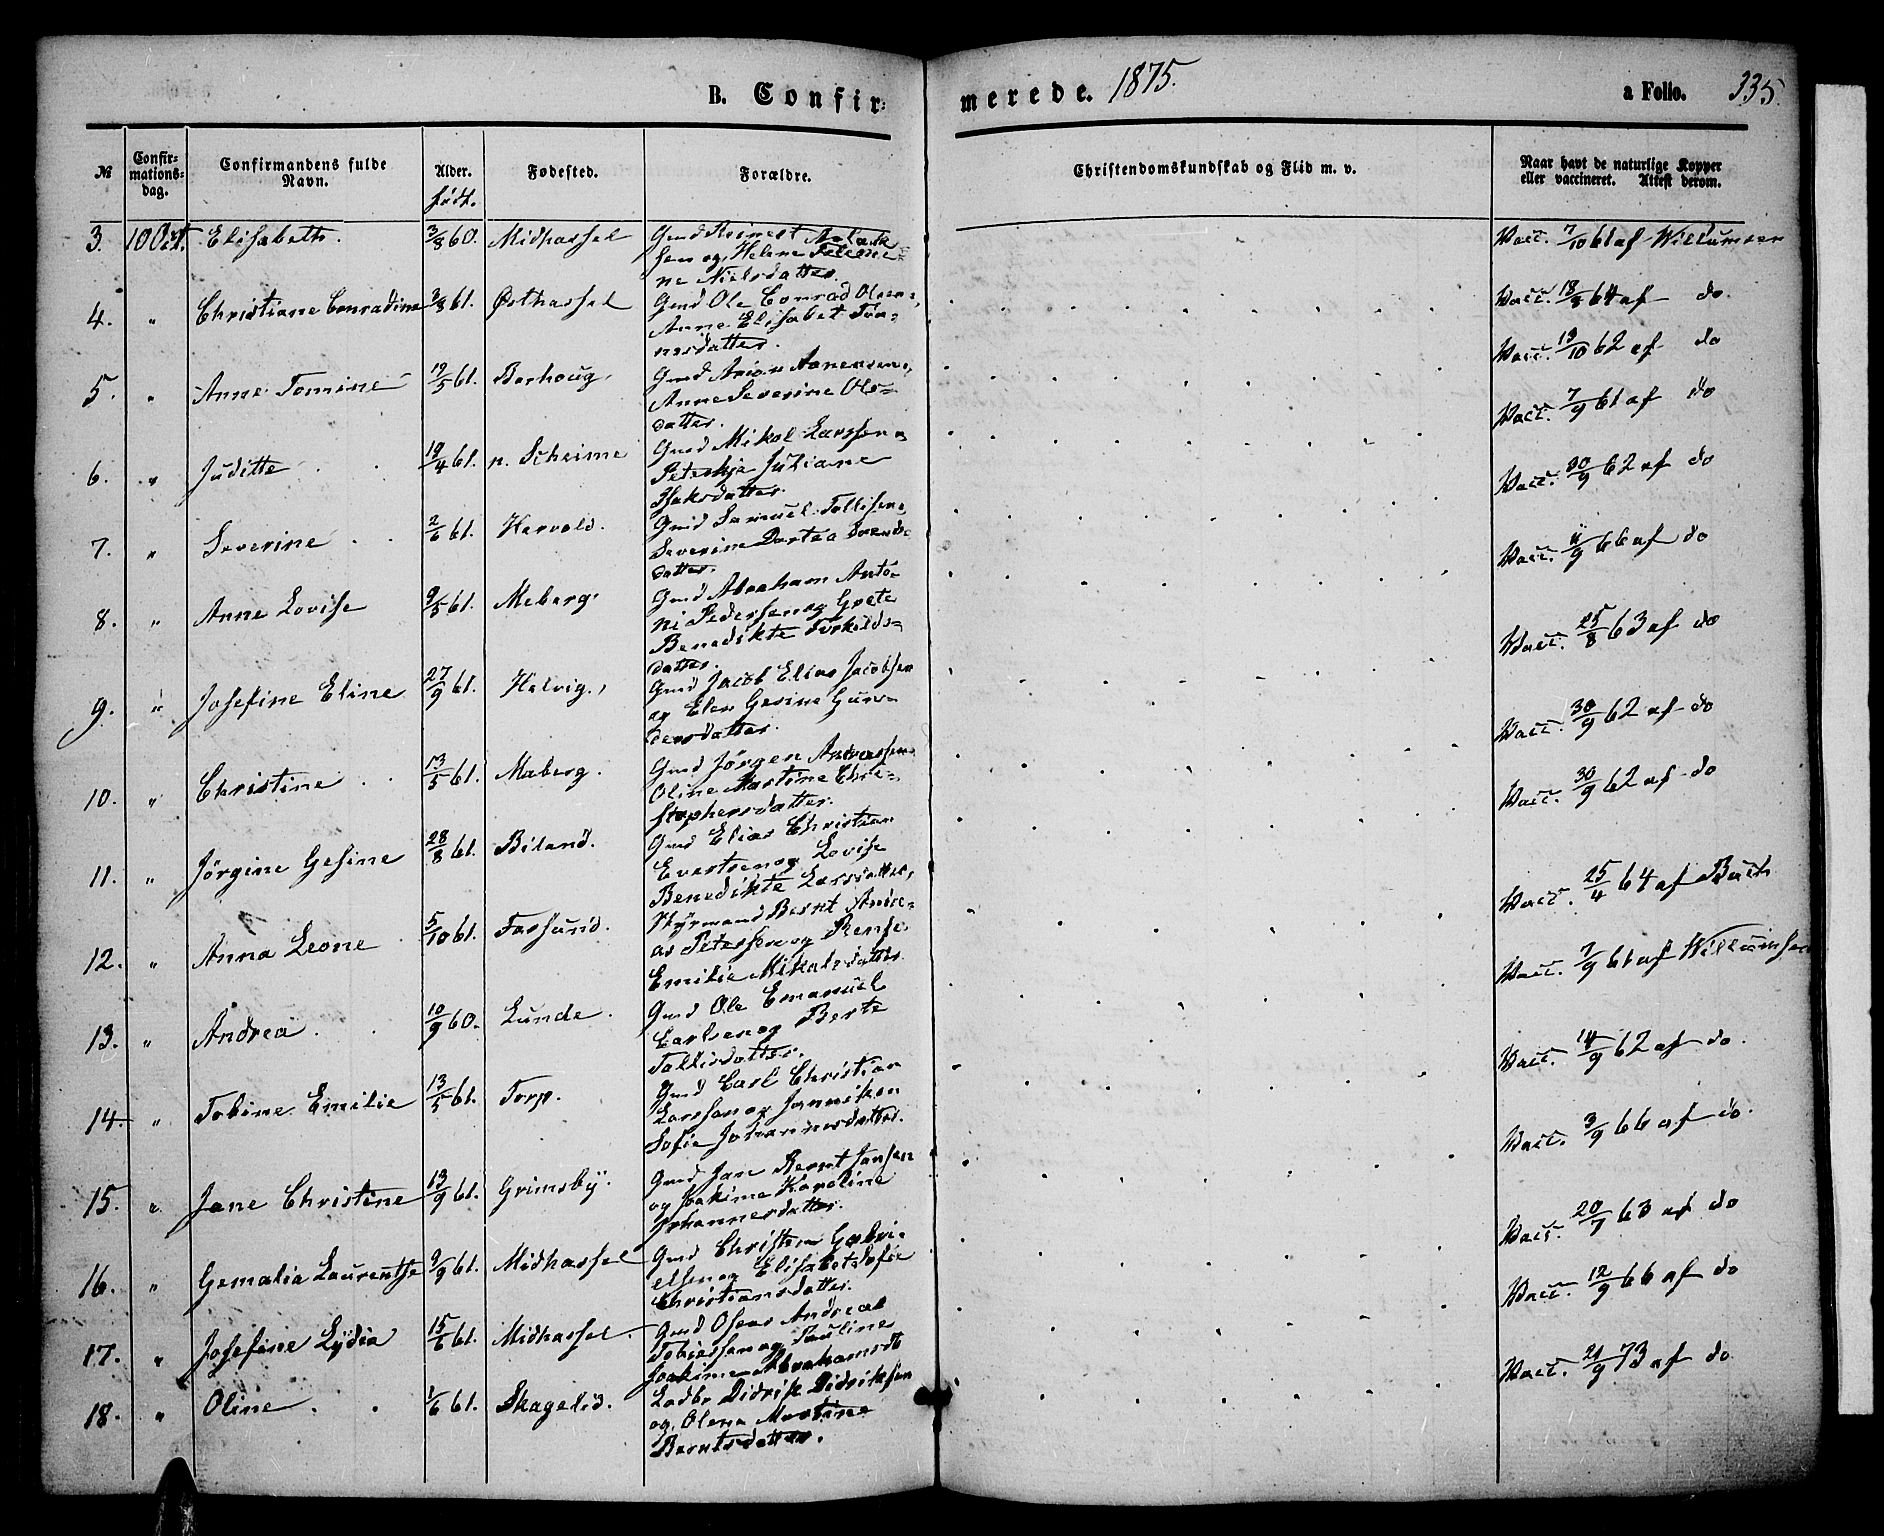 B. Confir=
merede. 1875.
a Folio. 335.
№
Confir=
mations=
dag.
Confirmandens fulde
Navn.
Alder.
født.
Fødested.
Forældre.
Christendomskundskab og Flid m. v.
Naar havt de naturlige Kopper
eller vaccineret. Attest derom.
3. 10 Oct. Elisabeth. 3/8 60. Midhassel
Gmd Reinert
sen og Helene
ne Nielsdatter.
Vacc. 7/10 61 af Willumsen
4. " Christiane Conradine 3/8 61. Østhassel
Gmd Ole Conrad Olsen,
Anne Elisabet Tøn=
nesdatter.
Vacc. 18/8 64 af do.
5. " Anne Tomine 19/5 61. Borhoug.
Gmd Anton Aanensen,
Anne Severine Ols=
datter.
Vacc. 13/10 62 af do
6. " Juditte 19/4 61. n. Scheime
Gmd Mikal Larssen,
Juliane
Isaksdatter.
Vacc. 7/9 61 af do
7. " Severine 2/6 61. Hervold.
Gmd Samuel Tollisen,
Severine Dortea Svends
datter.
Vacc. 30/9 62 af do
8. " Anne Lovise 9/5 61. Meberg.
Gmd Abraham Anto=
ni Pedersen og Grete
Benedikte Torkilds=
datter.
Vacc. 11/9 66 af do
9. " Josefine Eline 27/9 61. Helvig.
Gmd Jacob Elias Jacobsen
og Elen Gesine Gun=
dersdatter.
Vacc. 25/8 63 af do
10. " Christine 13/5 61. Maberg.
Gmd Jørgen Andreassen
Oline Martine Chri=
stophersdatter.
Vacc. 30/9 62 af do
11. " Jørgine Gesine 28/8 61. Biland.
Gmd Elias Christian
Evertsen og Lovise
Benedikte Larsdatter,
Vacc. 30/9 62 af do
12. " Anna Leone 5/10 61. Farsund.
Styrmand Bernt Andre=
as Petersen og Rense
Emilie Mikalsdatter
Vacc. 25/4 64 af Buch
13. " Andrea 10/9 60. Lunde.
Gmd Ole Emanuel
Carlsen og Berte
Tollisdatter.
Vacc. 7/9 61 af Willumsen
14. " Tobine Emilie 13/5 61. Torp.
Gmd Carl Christian
Larssen og Janniken
Sofie Johannesdatter.
Vacc. 14/9 62 af do.
15. " Jane Christine 13/9 61. Grimsby.
Gmd Jan Bernt Jansen
og Joakime Karoline
Johannesdatter.
Vacc. 3/9 66 af do.
16. " Gemalia Laurentse 9/9 61. Midhassel
Gmd Christen Gabri=
elsen og Elisabet Sofie
Christiansdatter.
Vacc. 20/7 63 af do
17. " Josefine Lydia 15/6 61. Midhassel.
Gmd Oseas Andreas
Tobiessen og Pauline
Joakime Abrahamsdt
Vacc. 12/9 66 af do
18. " Oline 1/6 61. Skagelid.
Ladbr Didrik Didriksen
og Olena Martine
Berntsdatter.
Vacc. 21/9 73 af do